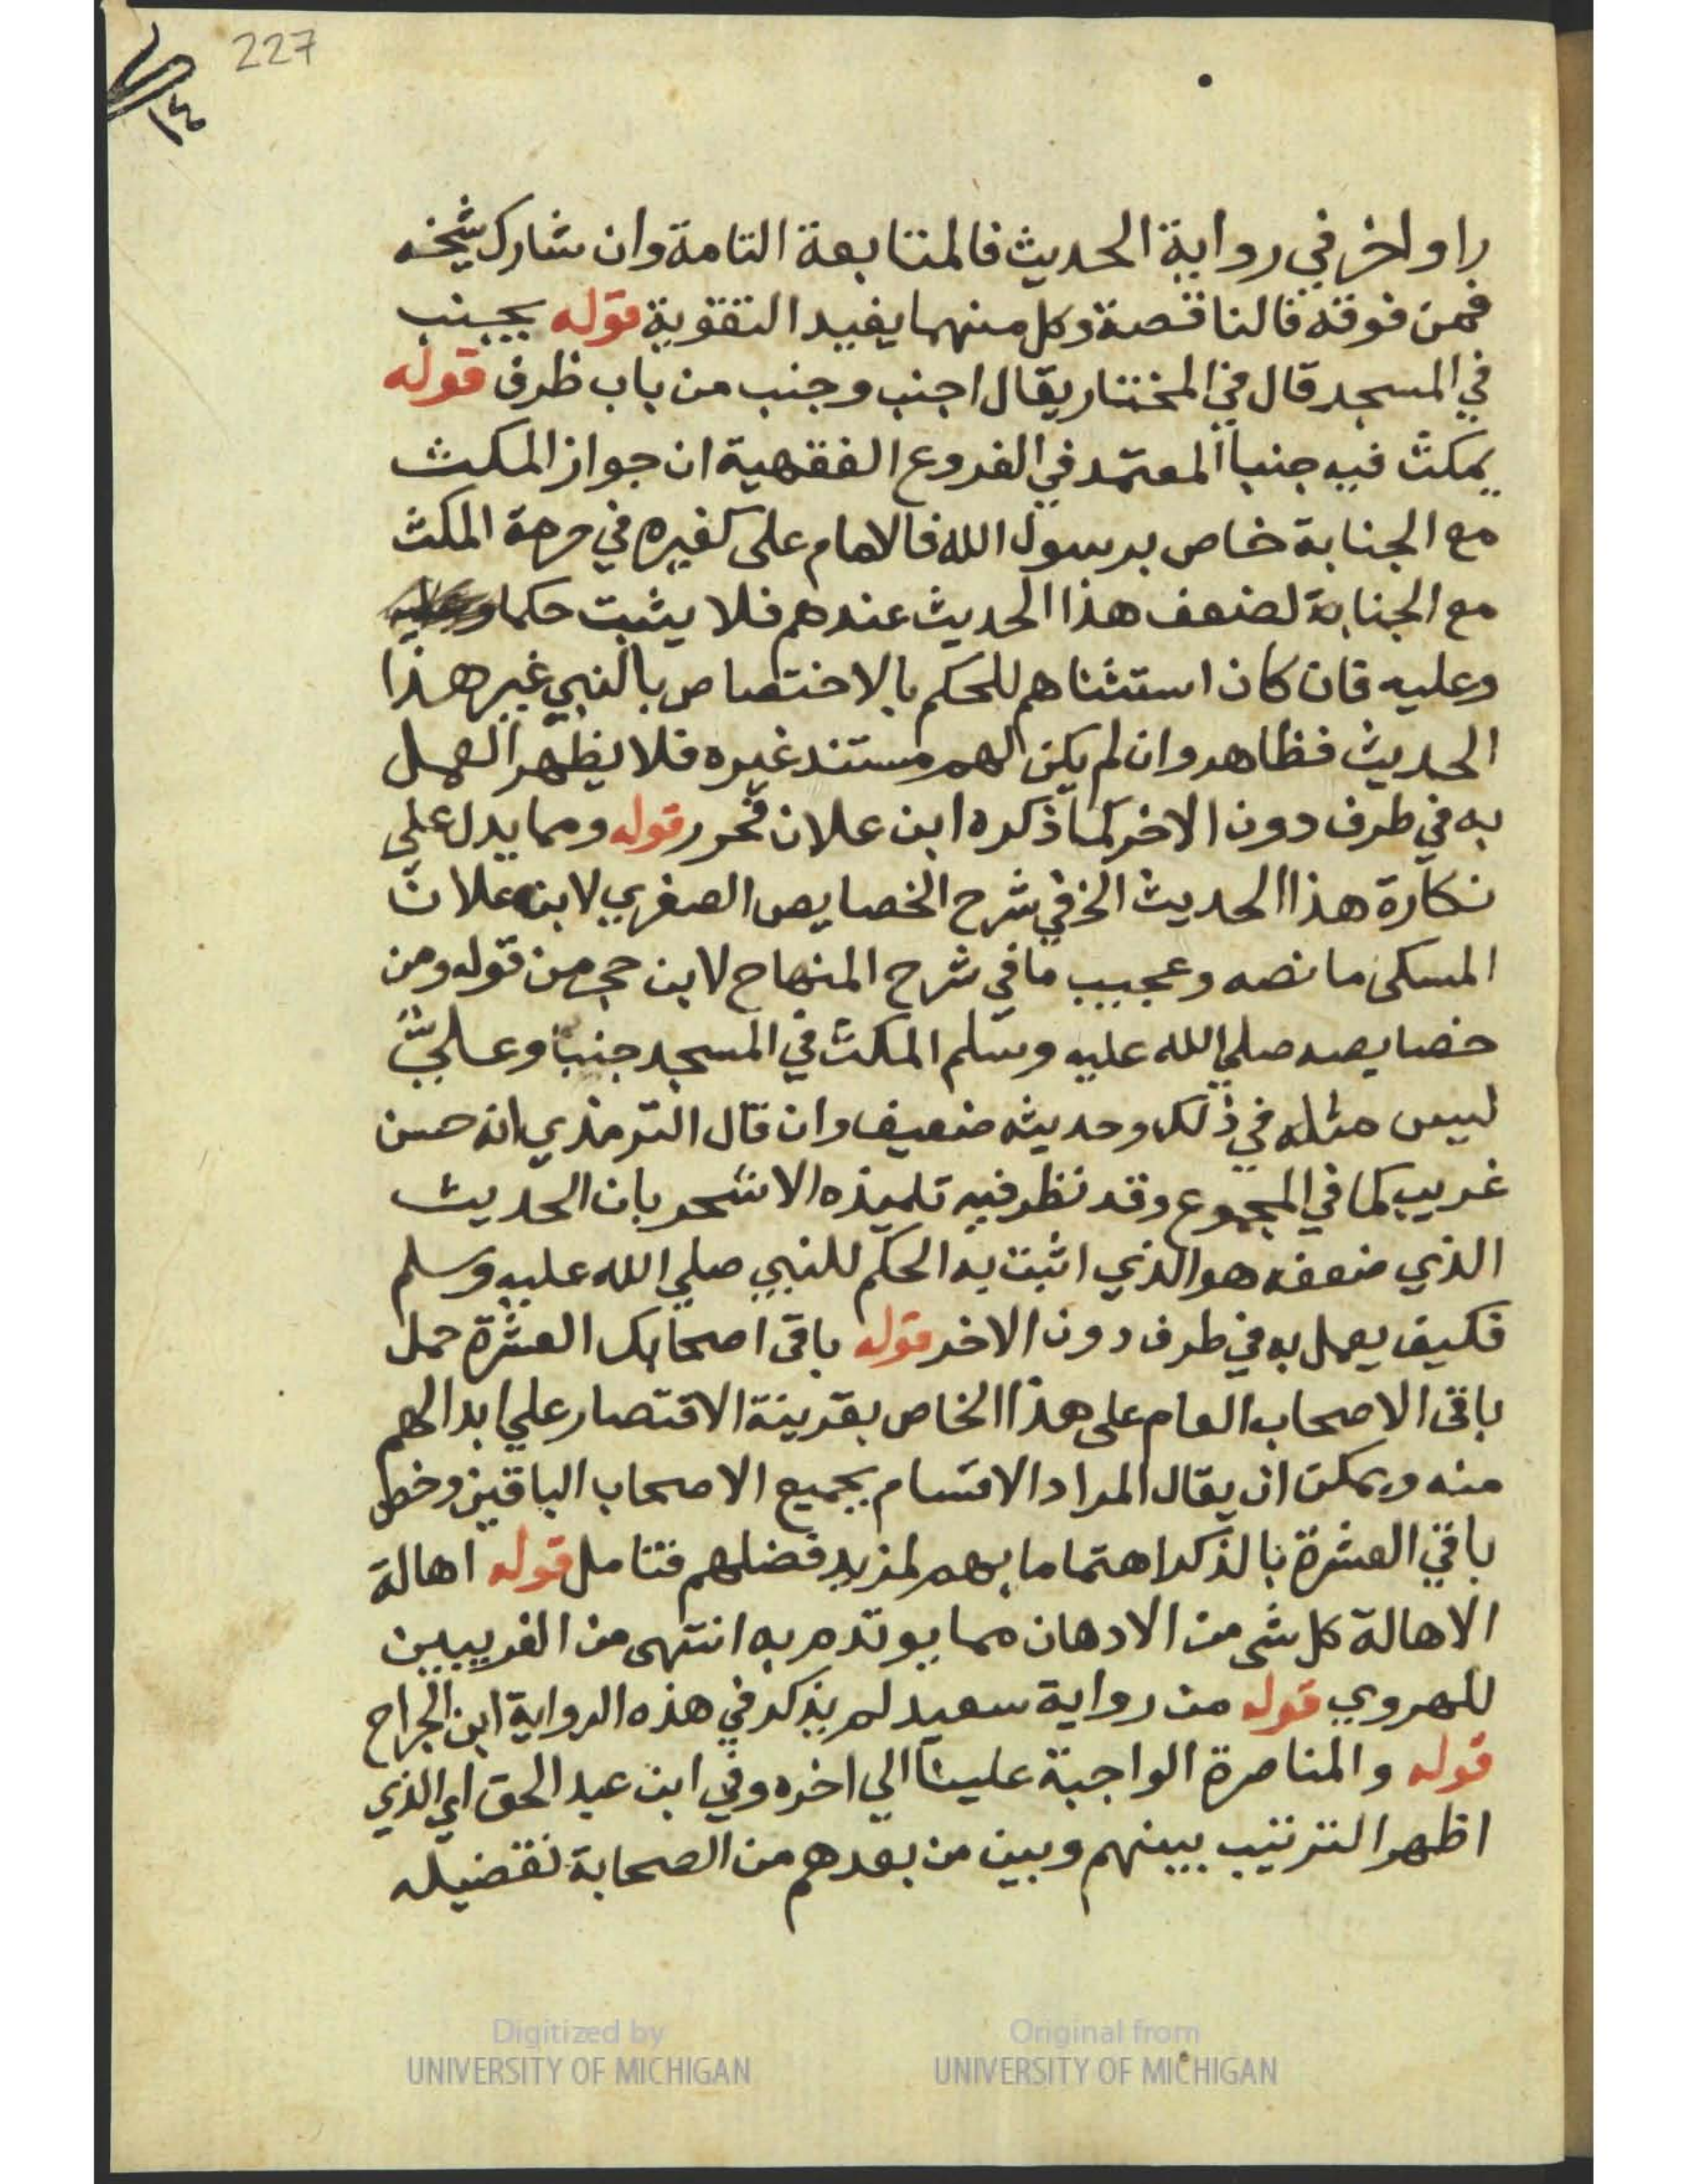 227
راو اخر في رواية الحديث فالمتابعة التامة وان شارك شيخه
فمن فوقه فالناقصة وكل منهما يفيد التقوية قوله يجنب
في المسجد قال في المختار يقال اجنب وجنب من باب ظرف قوله
يمكث فيه جنبا المعتمد في الفروع الفقهية ان جواز المكث
مع الجنابة خاص برسول الله فالامام على كغيره في حرمة المكث
مع الجنابة لضعف هذا الحديث عندهم فلا يثبت حكما
وعليه فان كان استثناهم للحكم بالاختصاص بالنبي غير هذا
الحديث فظاهر وان لم يكن لهم مستند غيره فلا يظهر العمل
به في طرف دون الاخر كما ذكره ابن علان فحرر قوله ومما يدل علي
نكارة هذا الحديث الخ في شرح الخصايص الصغري لابن علان
المسكى ما نصه وعجيب ما في شرح المنهاج لابن حجر من قوله ومن
خصايصه صلي الله عليه وسلم المكث في المسجد جنبا وعلي
ليس مثله في ذلك وحديثه ضعيف وان قال الترمذي انه حسن
غريب كما في المجموع وقد نظر فيه تلميذه الاشحر بان الحديث
الذي ضعفه هو الذي اثبت به الحكم للنبي صلي الله عليه وسلم
فكيف يعمل به في طرف دون الاخر قوله باقى اصحابك العشرة حمل
باقى الاصحاب العام على هذا الخاص بقرينة الاقتصار علي ابدالهم
منه ويمكن ان يقال المراد الاقسام بجميع الاصحاب الباقين وخص
باقي العشرة بالذكر اهتماما بهم لمزيد فضلهم فتامل قوله اهالة
الاهالة كل شى من الادهان مما يوتدم به انتهى من الغريبين
للهروي قوله من رواية سعيد لم يذكر في هذه الرواية ابن الجراح
قوله والمناصرة الواجبة علينا الي اخره وفي ابن عبد الحق اي الذي
اظهر الترتيب بينهم وبين من بعدهم من الصحابة تفضيله
Digitized by
UNIVERSITY OF MICHIGAN
Original from
UNIVERSITY OF MICHIGAN